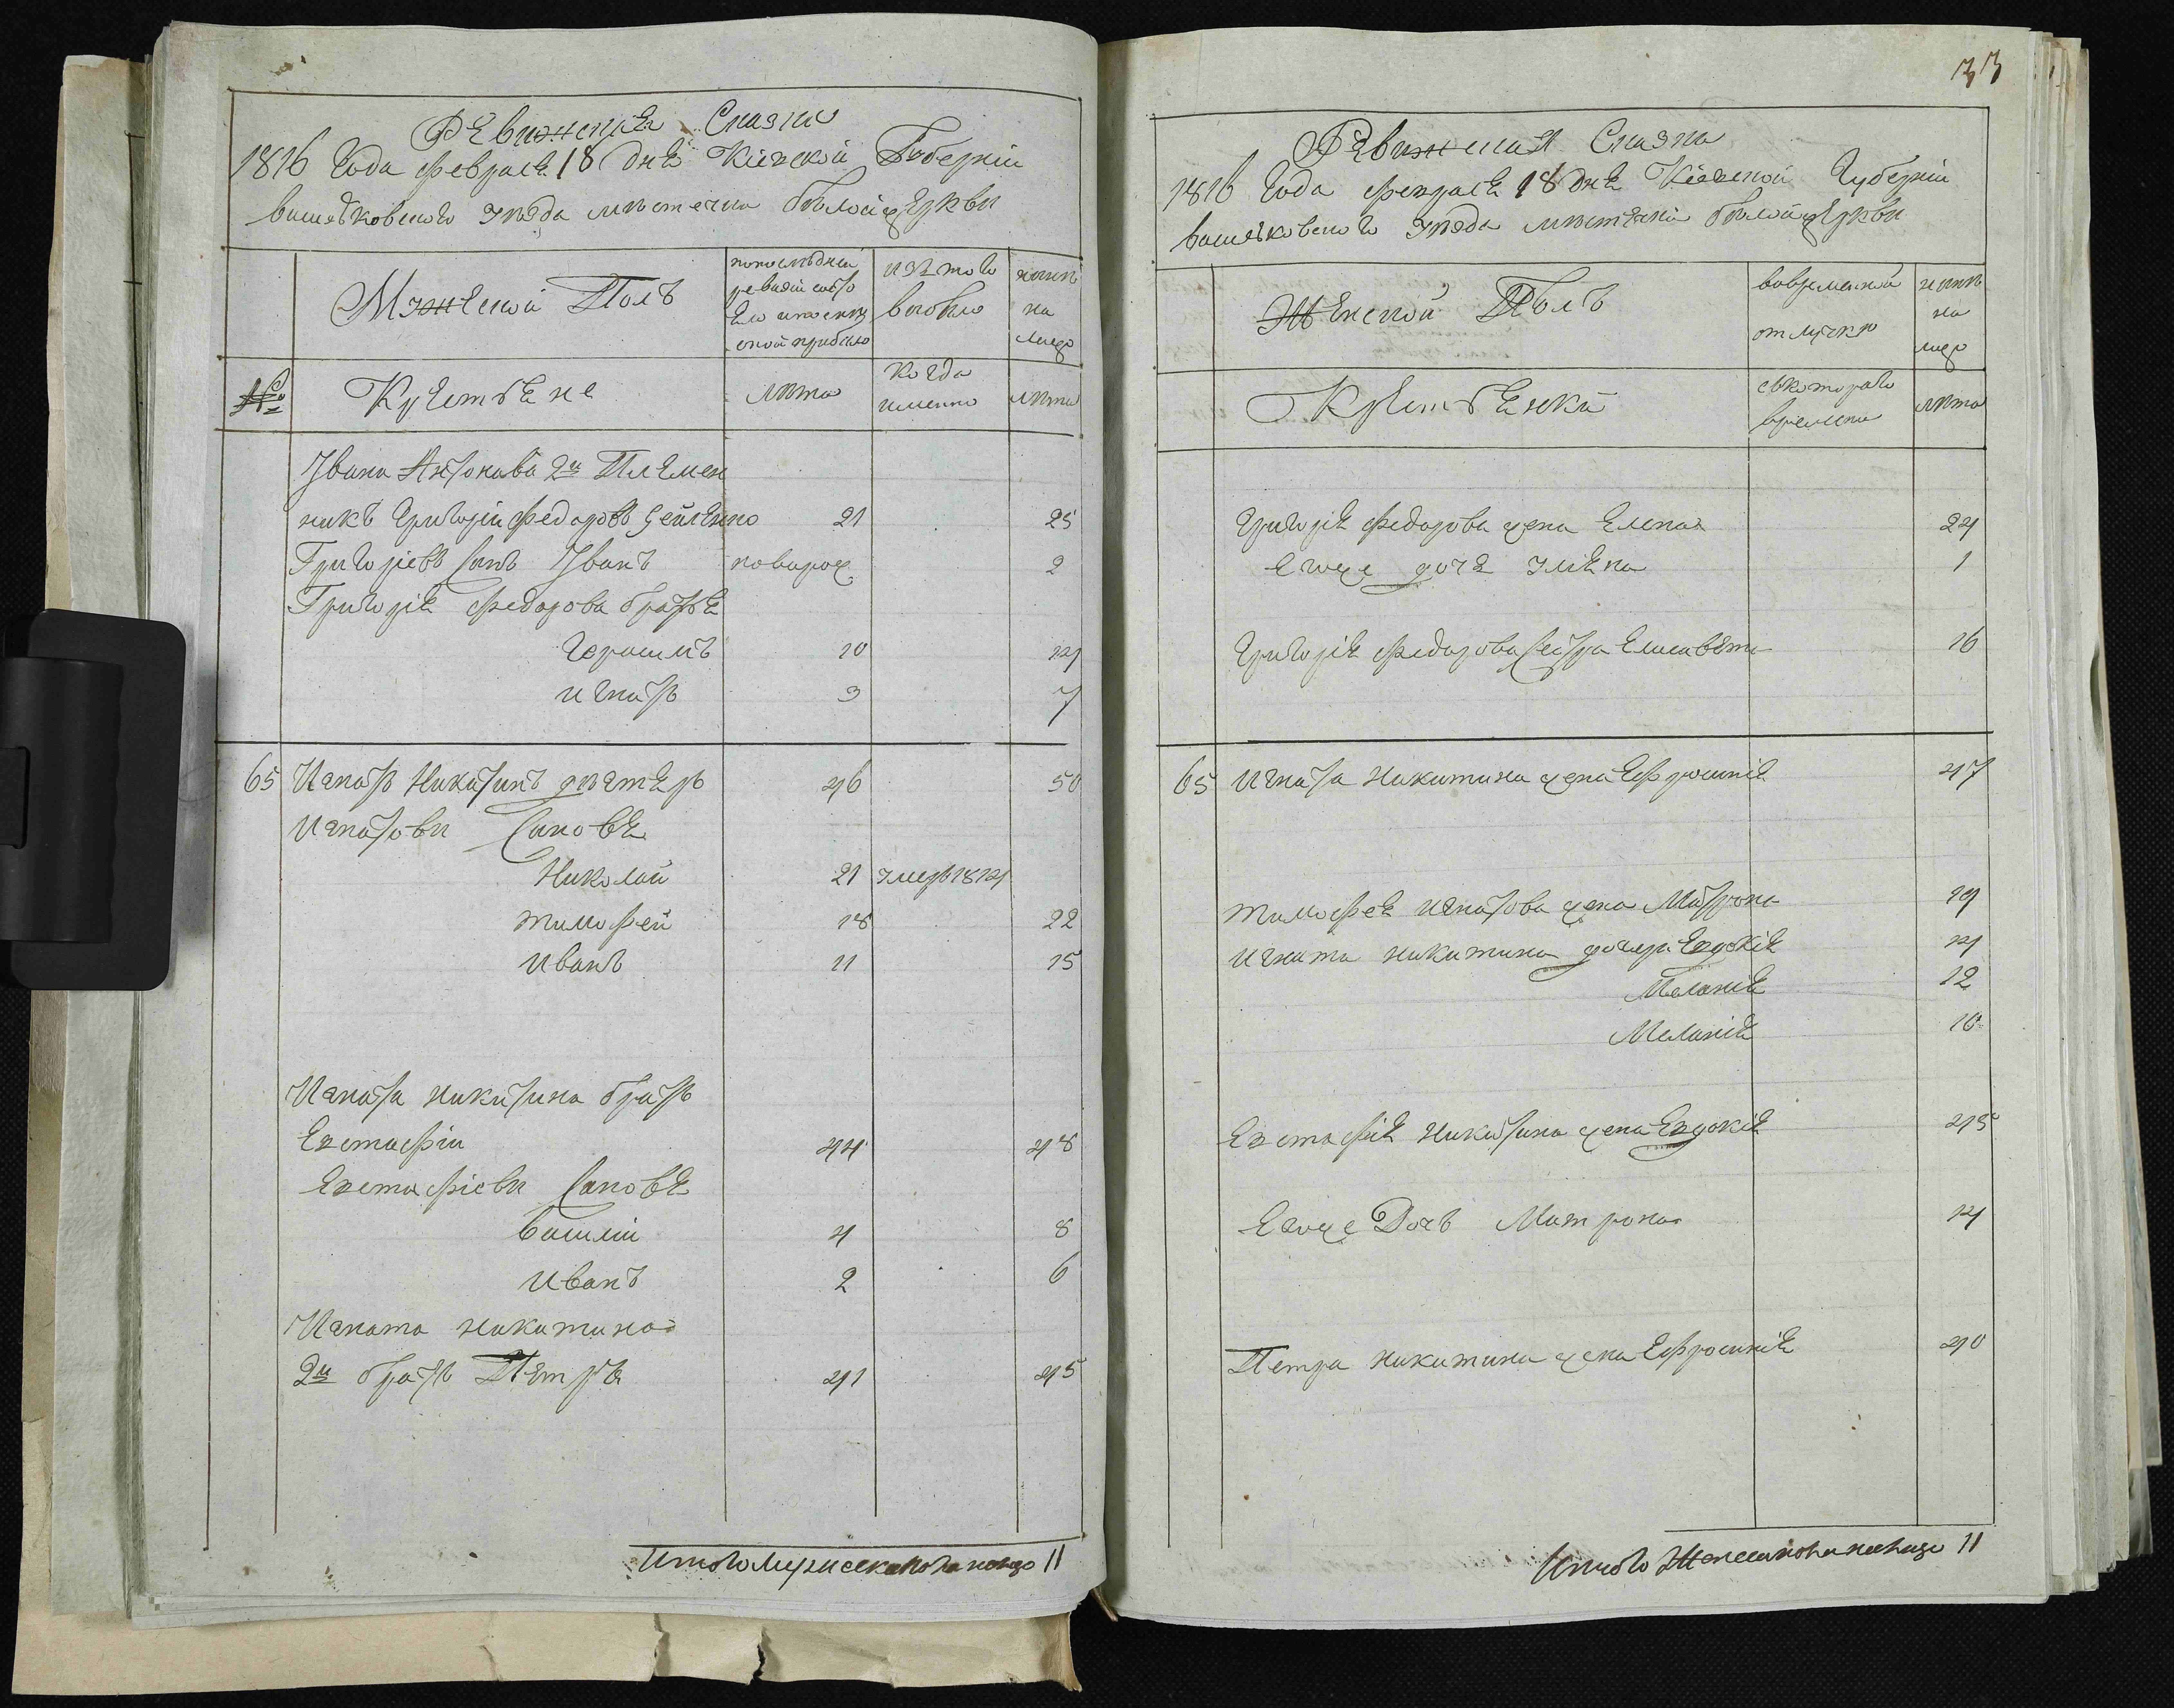 Ревижские Сказки
1816 Года февраля 18 дня Кіевской Губерніи
васильковского уезда местечка Белойцеркви
Мужеской Полъ
изъ того
выбыло
ныне
на
лицо
№
Крестьяне
лета
когда
именно
лета
Ивана Антонова 2й Племен
никъ Григорій федоровъ 21 25
Григоріевъ сынъ Иванъ новорож 2
Григорія федорова братья
Герасимъ 10 14
игнатъ 3 7
65 Игнатъ Никитинъ 46 50
Игнатовы сыновья
Николай 21 умеръ 1814
тимофей 18 22
иванъ 11 15
Игната никитина братъ
Евстафіи 44 48
Евстафіевы сыновья
василіи 4 8
иванъ 2 6
Игната никитина
2й братъ Петръ 41 45
Итого мужеска пола налицо 11
33
Ревижская Сказка
1816 Года февраля 18 дня Кіевской Губерніи
васильковского уезда местечка белойцеркви
Женской Полъ
вовременной
отлучке
ныне
на
лицо
Крестьянки
скотораго
времени
лета
Григорія федорова жена Елена 24
егоже дочь улияна 1
Григорія федорова сестра Елисавета 16
65 игната никитина жена Ефросинія 47
тимофея игнатова жена Матрона 19
игната никитина дочери Евдокія 14
Меланія 12
Меланія 10
Евстафія никитина жена Евдокія 45
Егоже Дочь Матрона 14
Петра никитина жена Ефросинія 40
Итого Женска пола налицо 11